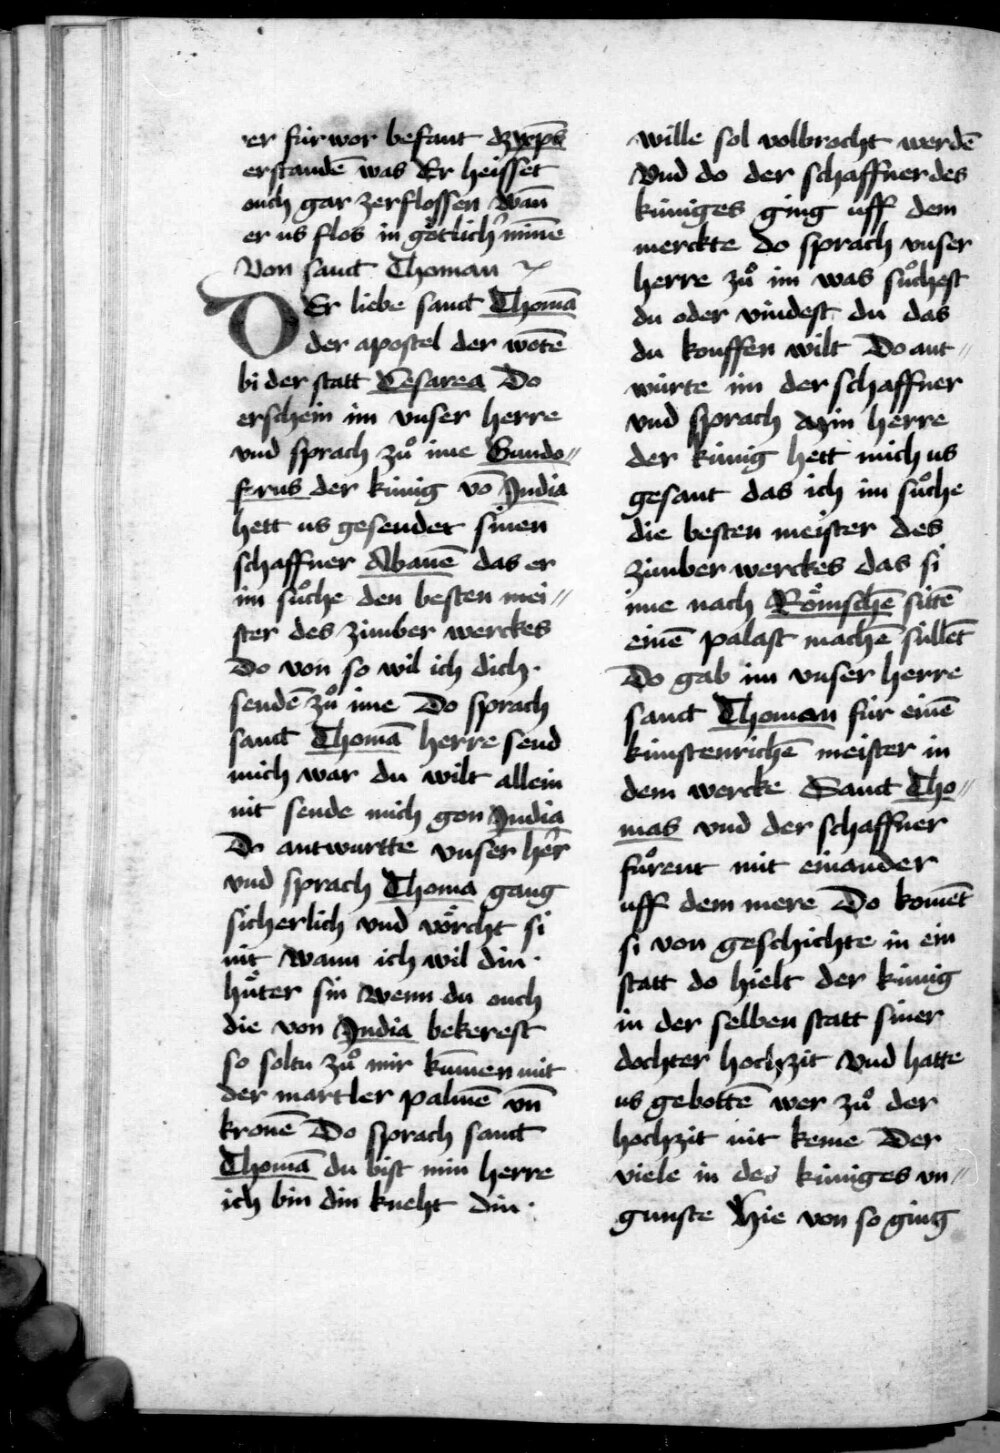 er fürwor befant dz xp̄s
erstandē was Er heisset
ouch gar zerflossen wān
er us flos in götlich' mīne
Von sanct Thoman
DEr liebe sanct Thomā
der apostel der wote̅
bi der statt Cesarea Do
erschein im vnser herre
vnd sprach zuͦ ime Gundo„
ferus der künig vō India
hett us gesendet sinen
schaffner Abanē das er
im suͦche den besten mei„
ster des zimber werckes
Do von so wil ich dich·
sendē zuͦ ime Do sprach
sanct Thomā herre send
mich war du wilt allein
nit sende mich gon India
Do antwurtte vnser her̄
vnd sprach Thoma gang
sicherlich vnd vörcht si
nit wann ich wil din·
hüter sin wenn du ouch
die von India bekerest
so soltu zuͦ mir kūmen mit
der martler palmē vn̄
kronē Do sprach sanct
Thomā du bist min herre
ich bin din kneht din·
wille sol volbrocht werdē
Vnd do der schaffner des
küniges ging uff dem
merckte do sprach vnser
herre zuͦ im was suͦchest
du oder vindest du das
du kouffen wilt Do ant„
würte im der schaffner
vnd sprach Min herre
der künig hett mich us
gesant das ich im suͦche
die besten meister des
zimber werckes das si
ime nach Römschē sittē
einē palast machē süllēt
Do gab im vnser herre
sanct Thoman für einē
künstenrichē meister in
dem wercke Sanct Tho„
mas vnd der schaffner
fuͦrent mit einander
uff dem mere Do komēt
si von geschichte in ein
statt do hielt der künig
in der selben statt siner
dochter hochzit Vnd hatte
us gebottē wer zuͦ der
hochzit nit keme Der
viele in des küniges vn„
gunste Hie von so ging